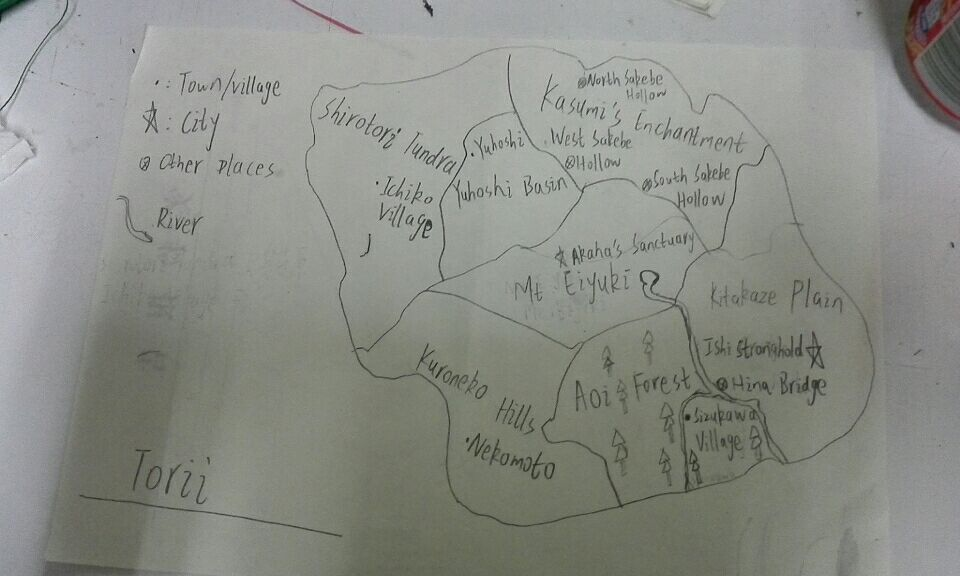 •: Town/village
☆: City
⊗ Other places
River
Shirotori Tundra
•Ichiko
Village
•Yuhoshi
Yuhoshi Basin
⊗North Sakebe
Hollow
Kasumi's Enchantment
West Sakebe
⊗Hollow
⊗South Sakebe
Hollow
☆Akaha's Sanctuary
Mt Eiyuki
Kitakaze Plain
Ishi Stronghold☆
⊗Hina Bridge
Kuroneko
Hills
•Nekomoto
Aoi Forest
•Sizukawa
Village
Torii